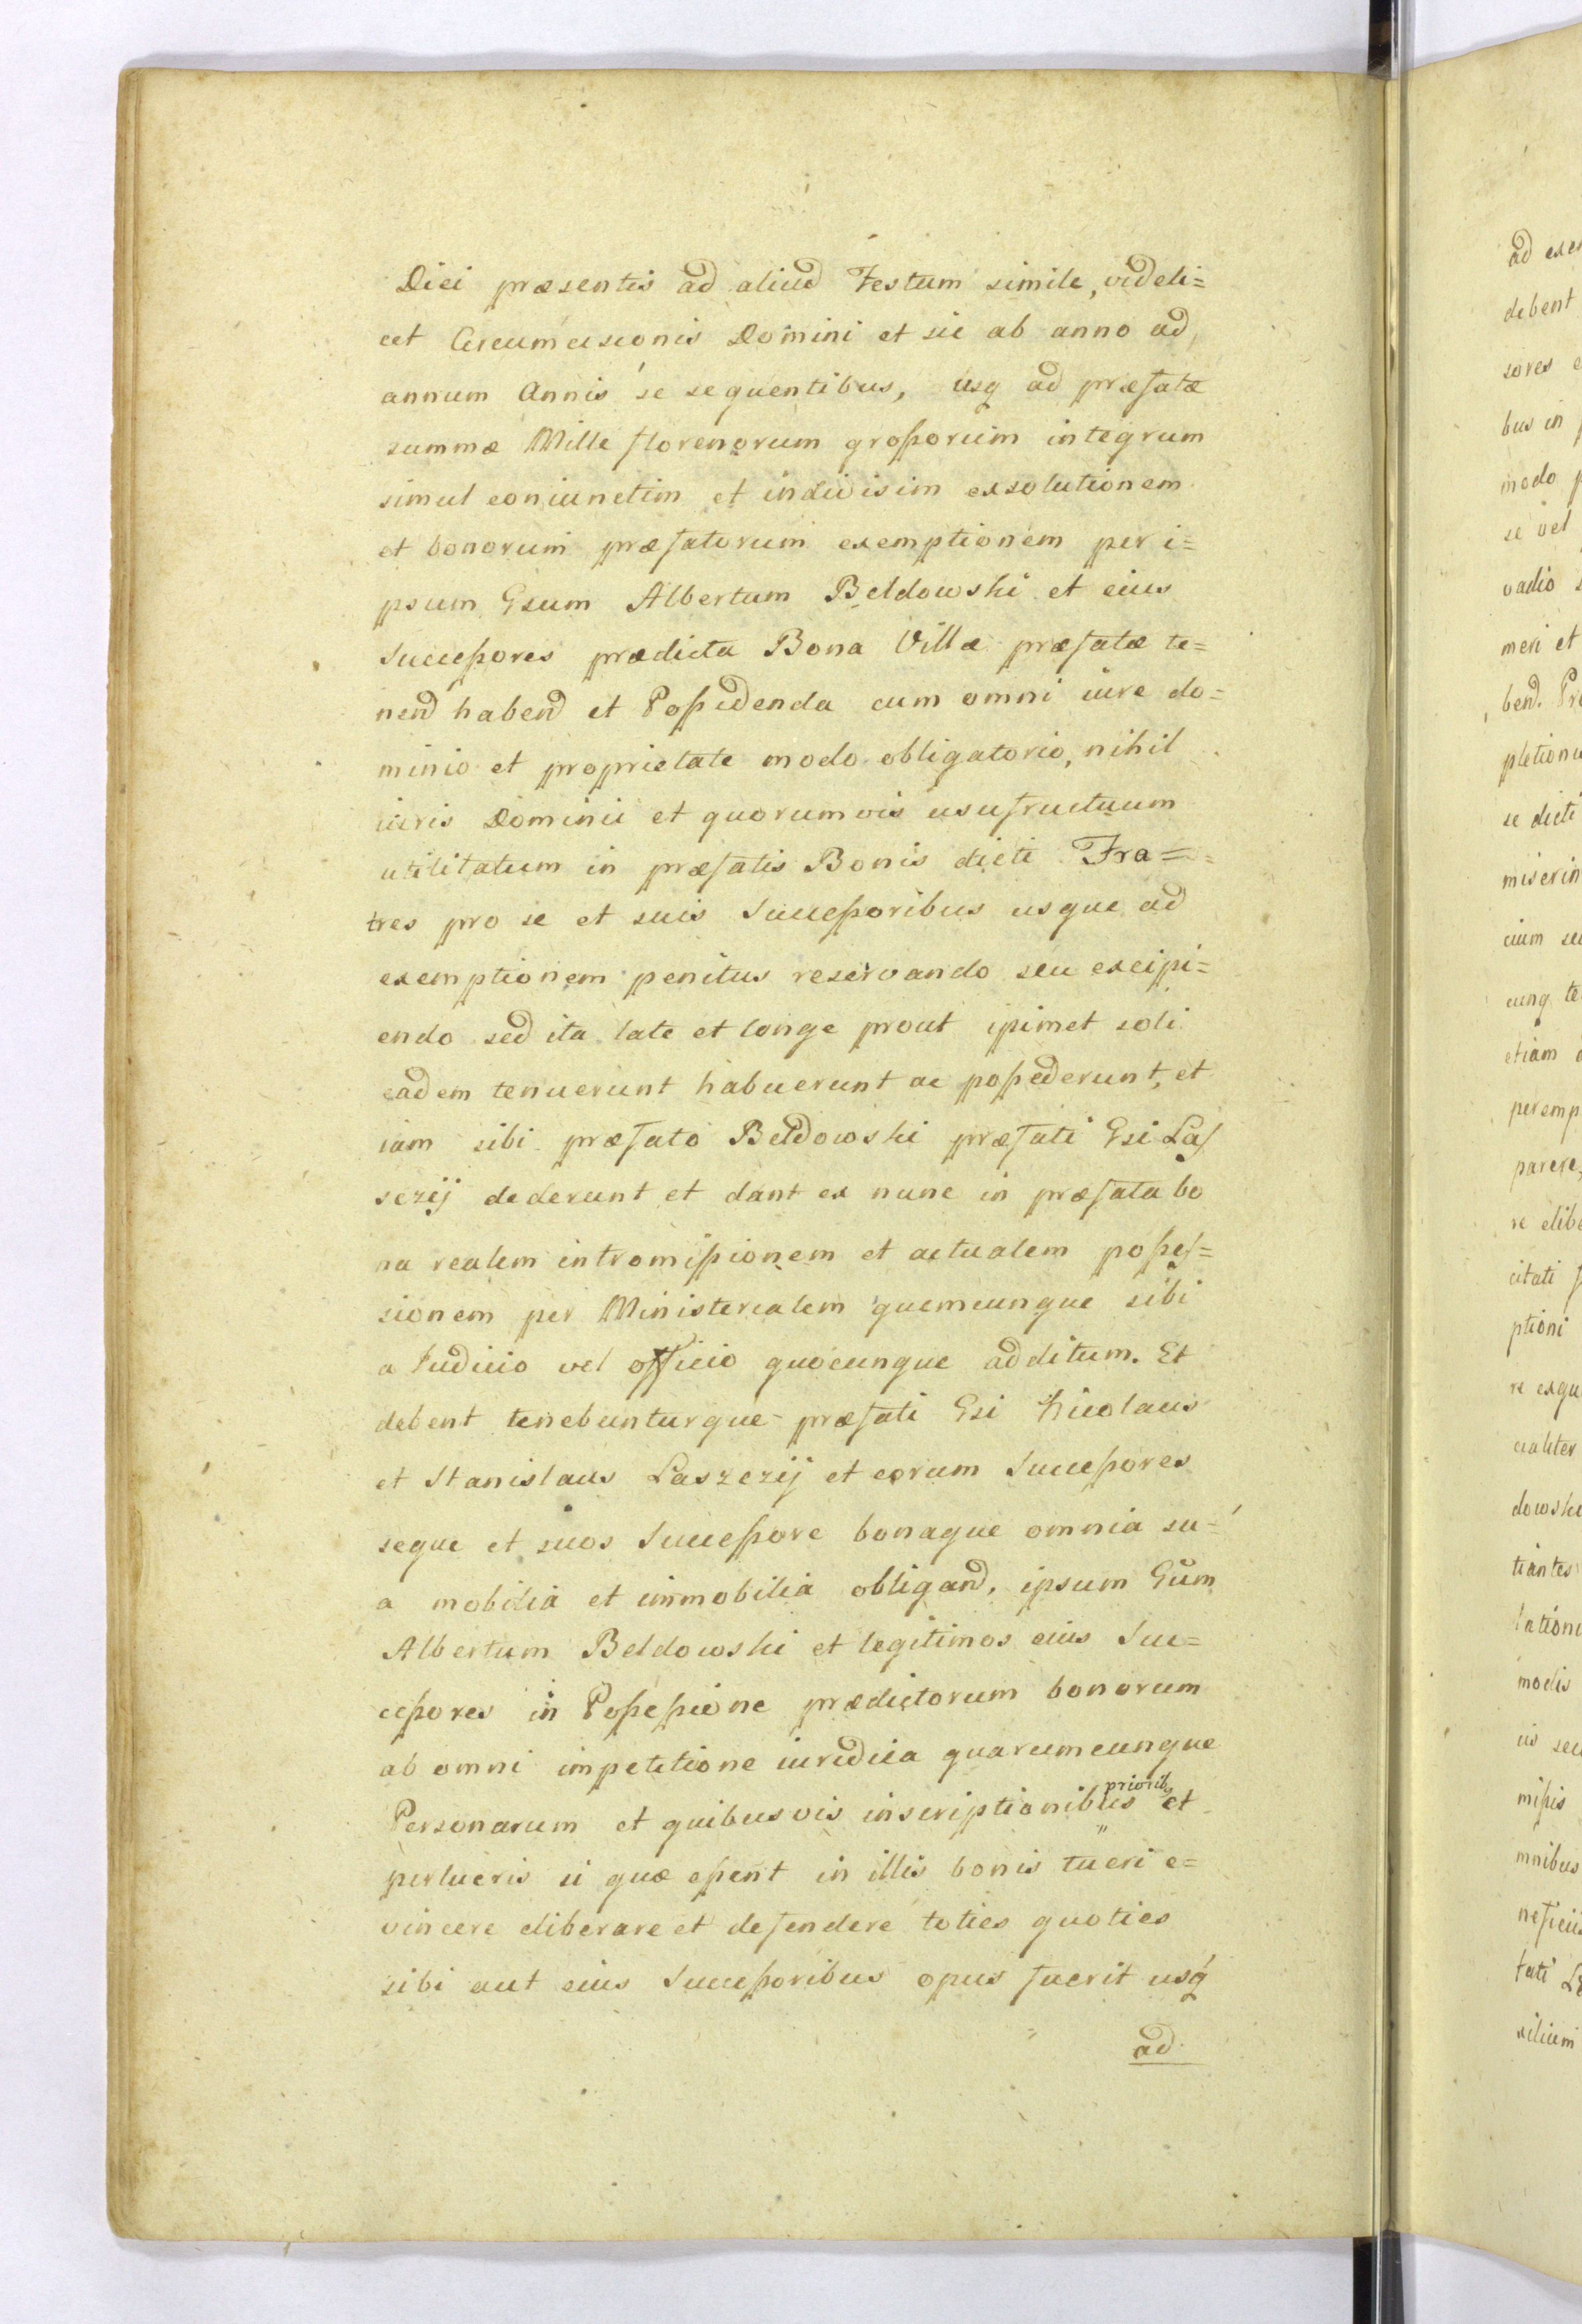 Diei præsentis ad aliud Festum simile, videli=
cet Circumcisionis Domini et sic ab anno ad
annum Annis se sequentibus, usq ad præfatæ
summæ Mille florenorum großorum integrum
simul coniunctim et indivisim exsolutionem
et bonorum præfatorum exemptionem per i=
psum Gsum Albertum Bełdowski et eius
Succeßores prædicta Bona Villæ præfatæ te=
nend habend et Poßidenda cum omni iure do=
minio et proprietate modo obligatorio, nihil
iuris Dominii et quorumvis usufructuum
utilitatum in præfatis Bonis dicti Fra=
tres pro se et suis Succeßoribus usque ad
exemptionem penitus reservando seu excipi=
endo sed ita late et longe prout ipimet soli
eadem tenuerunt habuerunt ac poßederunt, et
iam sibi præfato Beldowski præfati Gsi Las
sczij dederunt et dant ex nunc in præfata bo
na realem intromißionem et actualem poßes=
sionem per Ministerialem quemcunque sibi
a Iudicio vel officio quocunque additum. Et
debent tenebunturque præfati Gsi Nicolaus
et Stanislaus Laszczij et eorum Succeßores
seque et suos Succeßore bonaque omnia su=
a mobilia et immobilia obligand, ipsum Gum
Albertum Beldowski et legitimos eius Suc=
ceßores in Poßeßione prædictorum bonorum
ab omni impetitione iuridica quarumcunque
Personarum et quibusvis inscriptionibus priorib9 et
perlucris si quæ eßent in illis bonis tueri e=
vincere eliberare et defendere toties quoties
sibi aut eius Succeßoribus opus fuerit usq
ad